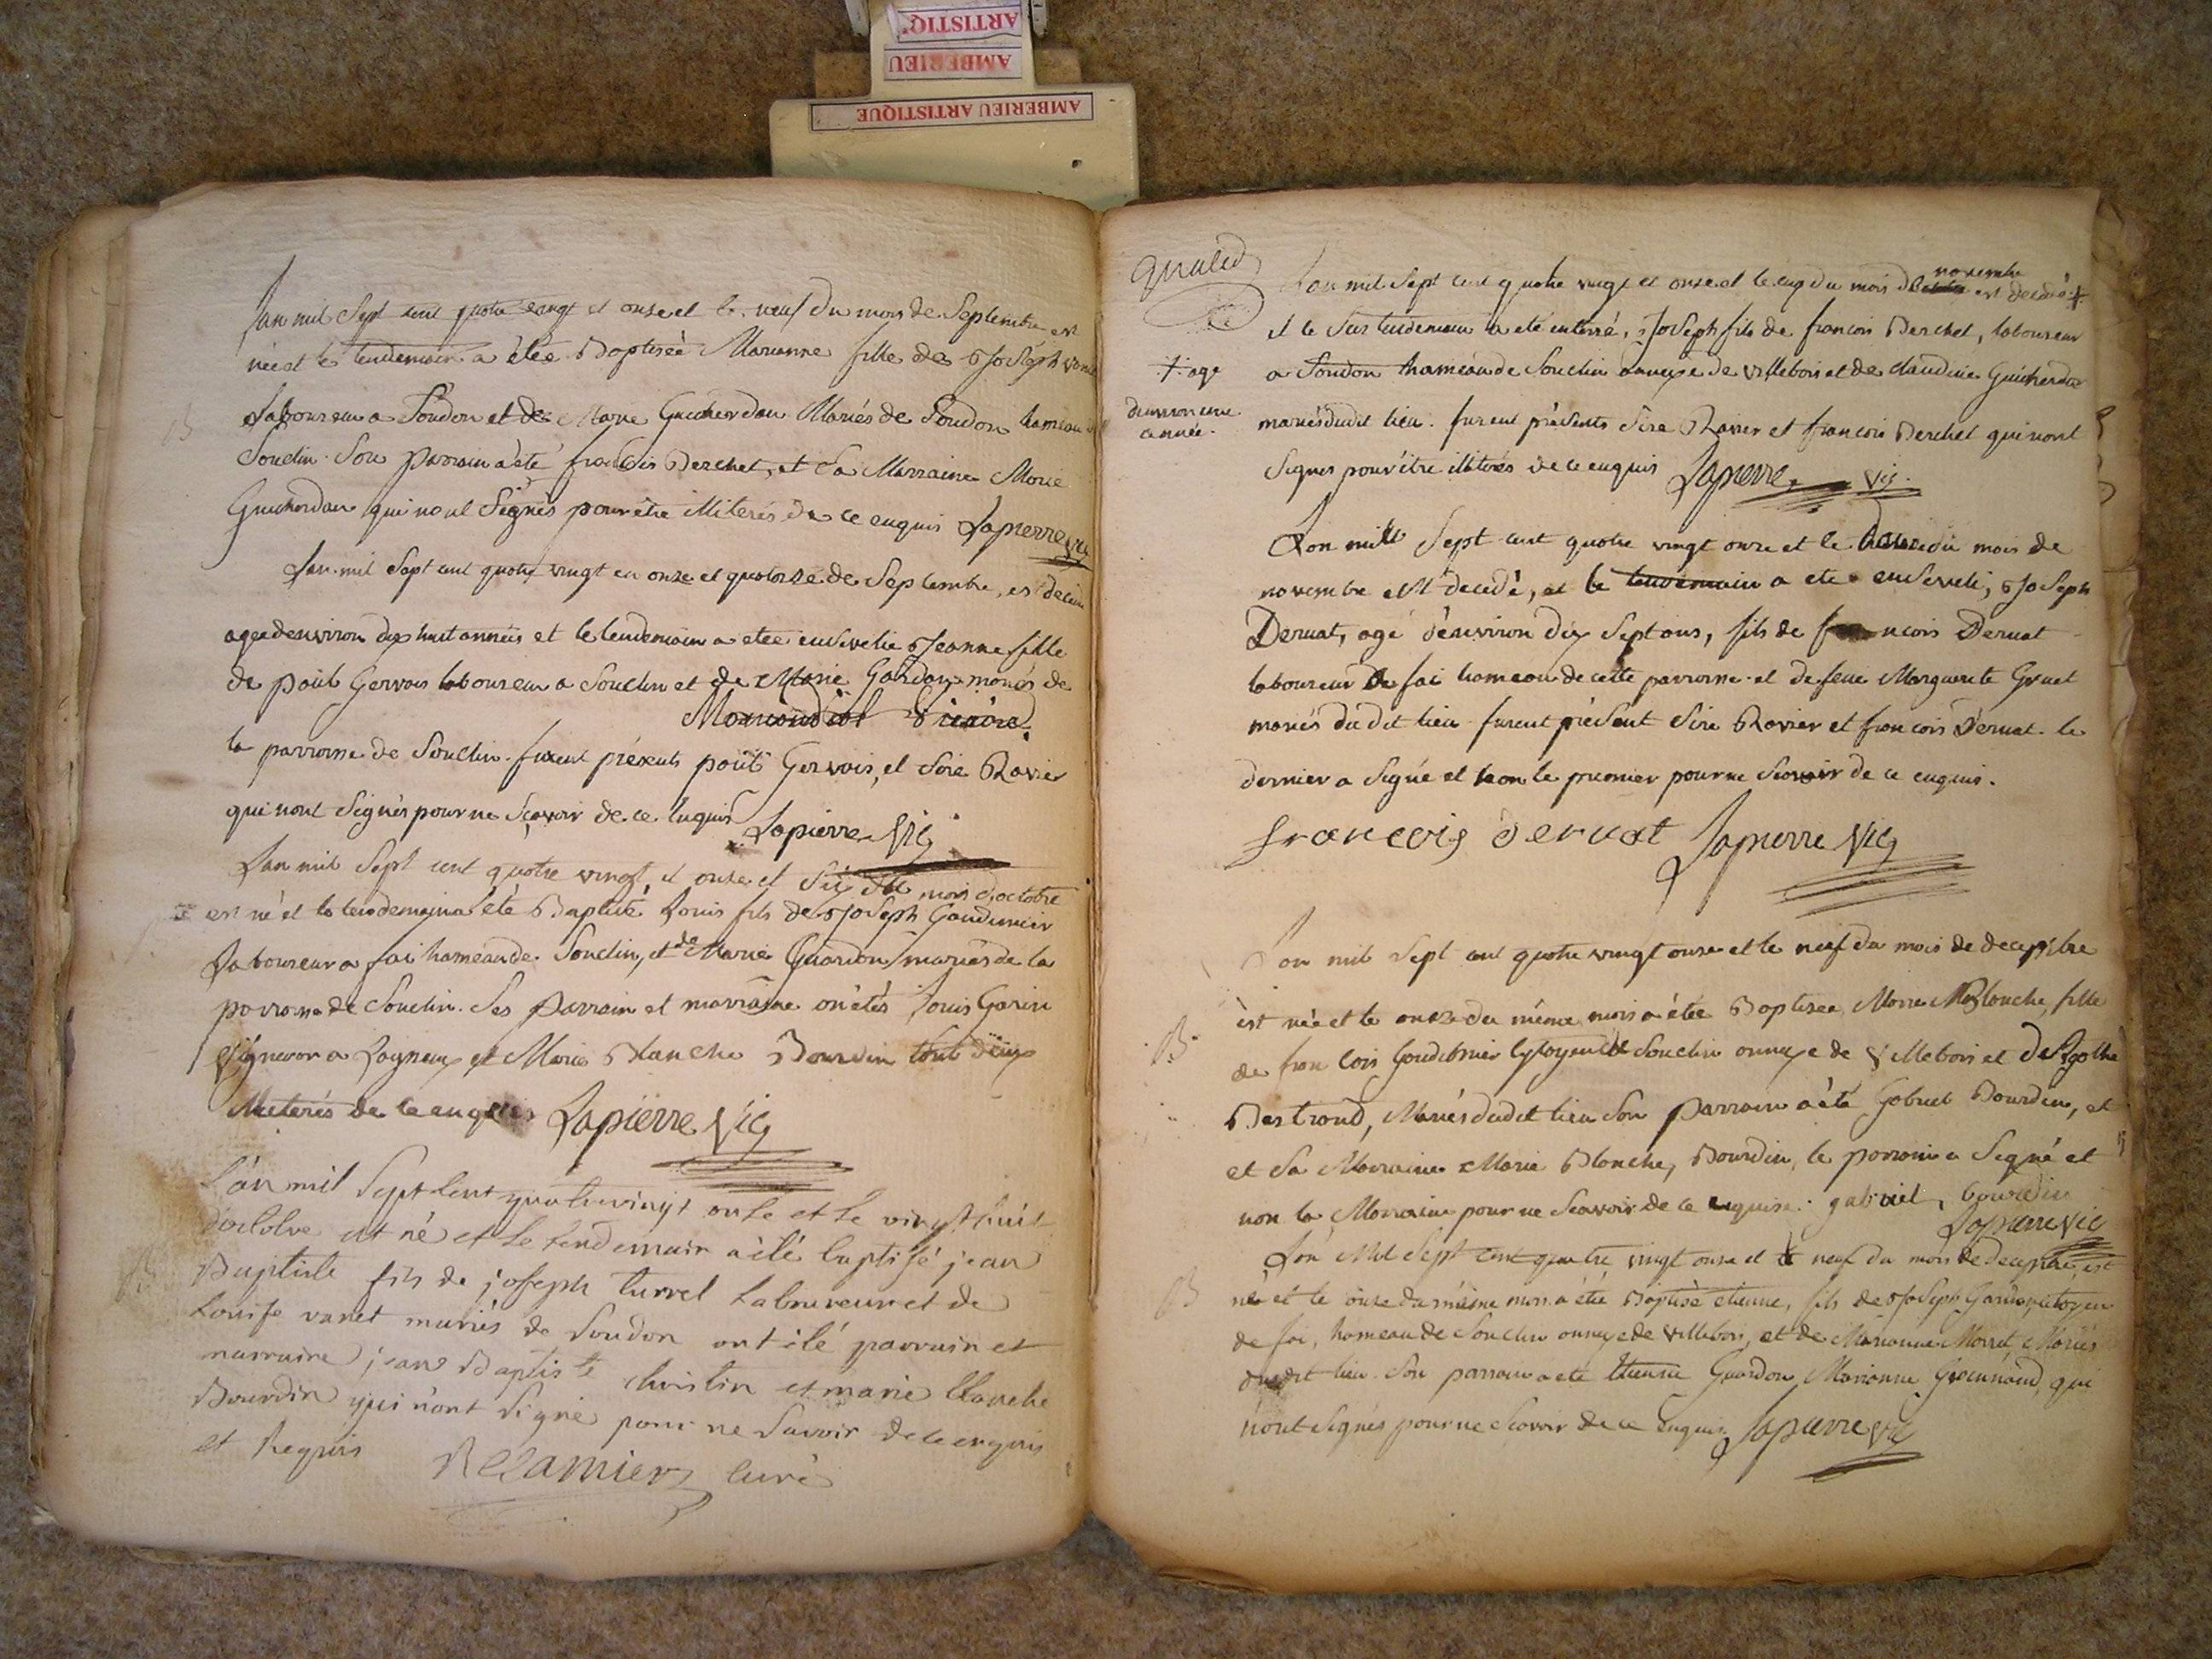 ARTISTIQ'
AMBERIEU
AMBERIEU ARTISTIQUE
Lan mil Sept cent quatre vingt et onze et le neuf du mois de Septembre est
née et le lendemain a étée Baptisée Marianne fille de Joseph
Laboureur a Soudon et de Marie Guicherdan Mariés de Soudon hameau
Souclin. Son parrain a été francois Berchet, et Sa Marraine Marie
Guicherdan qui nont Signés pour être illiterés de ce enquis Lapierre vic
Lan mil Sept cent quatre vingt en onze et quatorze de Septembre, est
agee denviron dix huit années et le lendemain a etee ensevelie Jeanne fille
de paul Gervais laboureur a Souclin et de Marie Gardon mariés de
la parroisse de Souclin. furent présents paul Gervais, et Sire Ravier
qui nont Signés pour ne Sçavoir de ce enquis Lapierre Vic
Lan mil Sept cent quatre vingt et onze et Six du mois d'octobre
est né et le lendemain a été Baptisé Louis fils de Joseph Gaudinier
Laboureur a fai hameau de Souclin, et de Marie Guardon mariés de la
parroisse de Souclin. Ses Parrain et marraine on étés Louis Garin
Vigneron a Lagneux et Marie Blanche Bourdin tout deux
illiterés de ce enquis Lapierre Vic
L'an mil Sept Cent quatrevingt onze et le vingt huit
d'octobre est né et le lendemain a été baptisé jean
Baptiste fils de joseph turrel Laboureur et de
Louise varet mariés de Soudon ont été parrain et
marraine jean Baptiste christin et marie blanche
Bourdin qui n'ont Signé pour ne Savoir de ce enquis
et Requis curé
Lan mil Sept cent quatre vingt et onze et le cinq du mois de novembre est decedé
et le Sur lendemain a eté enterré, Joseph fils de francois Berchet, laboureur
+ age
denviron une
année.
a Soudon hameau de Souclin annexe de Villebois et de claudine Guicherdan
mariés dudit lieu. furent présents Sire Ravier et francois Berchet qui nont
Signés pour être illiterés de ce enquis Lapierre Vic.
Lan mill Sept cent quatre vingt onze et le du mois de
novembre est decedé, et le lendemain a ete enseveli, Joseph
Deruat, agé d'environ dix Sept ans, fils de francois Deruat
laboureur de fai hameau de cette parroisse et de feue Marguerite Gruet
mariés du dit lieu furent présent Sire Ravier et francois Deruat. le
dernier a Signé et non le premier pour ne Scavoir de ce enquis.
francois deruat Lapierre Vic
Lan mil Sept cent quatre vingt onze et le neuf du mois de decembre
B
est née et le onze du même mois a étée Baptisée Marie Blanche, fille
de francois Goudinier Cytoyen de Souclin annexe de Villebois et de Agathe
Bertrand, Mariés dudit lieu Son Parrain a été Gabriel Bourdin, et
et Sa Marraine Marie Blanche, Bourdin, le parrain a Signé et
non la Marraine pour ne Scavoir de ce enquise. gabriel, bourdin
Lapierre Vic
B
Lan Mil Sept cent quatre vingt onze et le neuf du mois de decembre est
né et le onze du même mois a été Baptisé etienne, fils de Joseph Gardon citoyen
de fai, hameau de Souclin annexe de Villebois, et de Marianne Morret, Mariés
dudit lieu. Son parrain a été Etienne Guardon, Marianne Greunaud, qui
n'ont Signés pour ne Scavoir de ce enquis Lapierre Vic